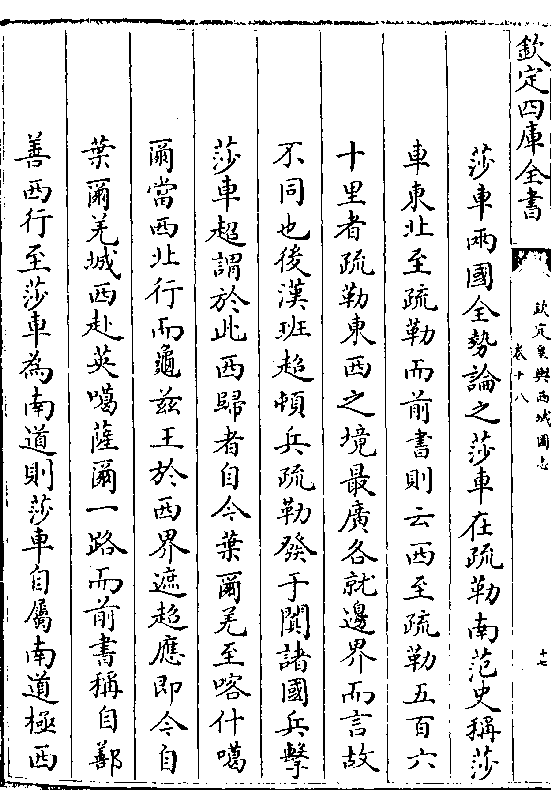 欽定四庫全書
欽定皇輿西域圖志
卷十八
十七
莎車兩國全勢論之莎車在疏勒南范史稱莎
車東北至疏勒而前書則云西至疏勒五百六
十里者疏勒東西之境最廣各就邊界而言故
不同也後漢班超頓兵疏勒發于闐諸國兵擊
莎車超謂於此西歸者自今葉爾羌至喀什噶
爾當西北行而龜茲王於西界遮超應即今自
葉爾羌城西赴英噶薩爾一路而前書稱自鄯
善西行至莎車為南道則莎車自屬南道極西